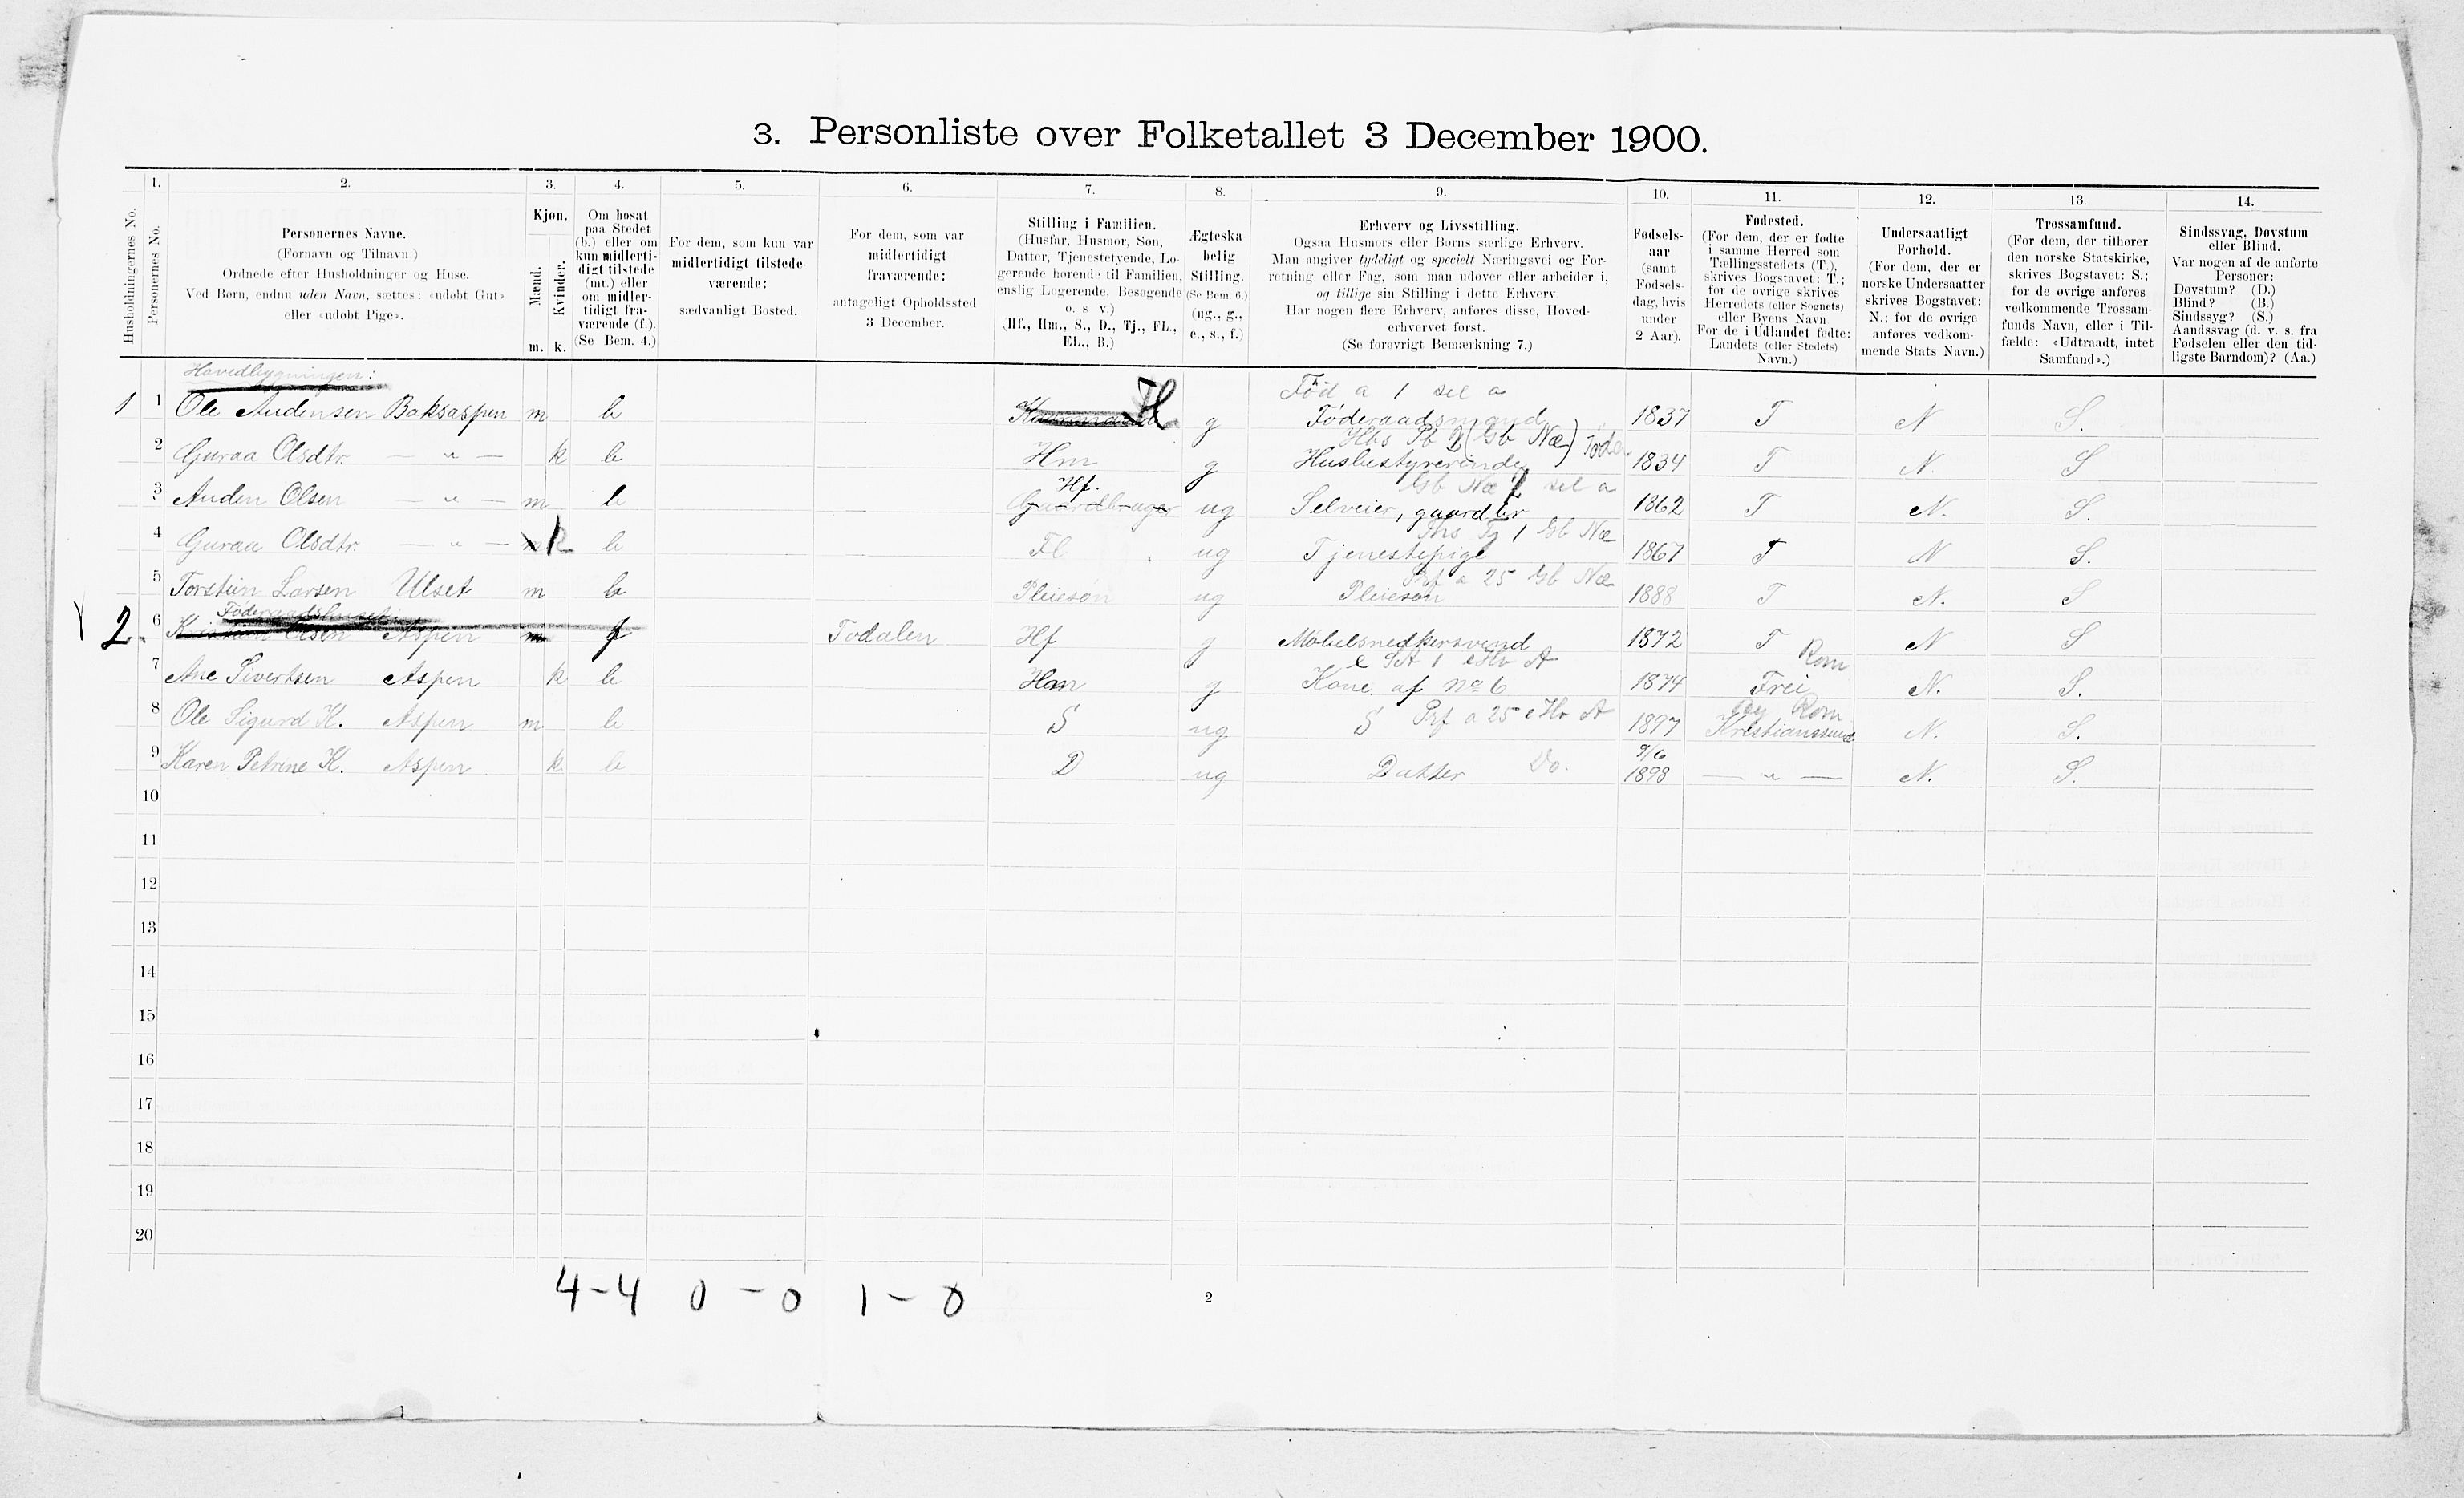 3. Personliste over Folketallet 3 December 1900.
Husholdningernes No.
1.
Personernes No.
2.
Personernes Navne.
(Fornavn og Tilnavn )
Ordnede efter Husholdninger og Huse.
Ved Børn, endnu uden Navn, sættes: «udøbt Gut»
eller «udøbt Pige».
3.
Kjøn.
Mænd.
Kvinder.
m. k.
4.
Om bosat
paa Stedet
(b.) eller om
kun midlerti-
digt tilstede
(mt.) eller
om midler-
tidigt fra-
værende (f.).
(Se Bem. 4.)
5.
For dem, som kun var
midlertidigt tilstede-
værende:
sædvanligt Bosted.
6.
For dem, som var
midlertidigt
fraværende:
antageligt Opholdssted
3 December.
7.
Stilling i Familien.
(Husfar, Husmor, Søn,
Datter, Tjenestetyende, Lo-
gerende hørende til Familien,
enslig Logerende, Besøgende
o. s v.)
(Hf., Hm., S., D., Tj., FL.,
EL., B.)
8.
Ægteska-
belig
Stilling.
(Se Bem. 6.)
(ug., g.,
e., s., f.)
9.
Erhverv og Livsstilling.
Ogsaa Husmors eller Børns særlige Erhverv.
Man angiver tydeligt og specielt Næringsvei og For-
retning eller Fag, som man udøver eller arbeider i,
og tillige sin Stilling i dette Erhverv
Har nogen flere Erhverv, anføres disse, Hoved-
erhvervet først.
(Se forøvrigt Bemærkning 7.)
10.
Fødsels-
aar
(samt
Fødsels-
dag, hvis
under
2 Aar).
11.
Fødested.
(For dem, der er fødte
i samme Herred som
Tællingsstedets (T.),
skrives Bogstavet: T.;
for de øvrige skrives
Herredets (eller Sognets)
eller Byens Navn
For de i Udlandet fødte:
Landets (eller Stedets)
Navn.)
12.
Undersaatligt
Forhold.
(For dem, der er
norske Undersaatter
skrives Bogstavet:
N.; for de øvrige
anføres vedkom-
mende Stats Navn.)
13.
Trossamfund.
(For dem, der tilhører
den norske Statskirke,
skrives Bogstavet: S.;
for de øvrige anføres
vedkommende Trossam-
funds Navn, eller i Til-
fælde: «Udtraadt, intet
Samfund».)
14.
Sindssvag, Døvstum
eller Blind.
Var nogen af de anførte
Personer:
Døvstum? (D.)
Blind? (B.)
Sindssyg? (S.)
Aandssvag (d. v. s. fra
Fødselen eller den tid-
ligste Barndom)? (Aa.)
Hovedbygningen:
Fød a 1 sel a
1 1 Ole Audensen Baksaspen m b Fl g Føderaadsmand 1837 T N S.
Hbs Pb 2 (Gb Næ) Føda
2 Guraa Olsdtr. — " — k b Hm g Husbestyrerinde 1834 T N. S
Hf. Gb Næ 2 sel a
3 Auden Olsen — " — m b Gaardbruger ug Selveier, gaardbr 1862 T N. S.
Ths Tj 1 Gb Næ
4 Guraa Olsdtr. — " — m k b Fl ug Tjenestepige 1867 T N S.
Prf a 25 Gb Næ
5 Torstein Larsen Ulset m b Pleiesøn ug Pleiesøn 1888 T N. S
Føderaadshuset:
2. 6 Kristian Olsen Aspen m f Todalen Hf g Møbelsnedkersvend 1872 T N S
e SA 1 eHv A Rom
7 Ane Sivertsen Aspen k b Hm g Kone af No 6 1874 Frei N. S.
Prf a 25 eHv A By Rom
8 Ole Sigurd K. Aspen m b S ug S 1897 Kristianssund N. S.
9/6
9 Karen Petrine K. Aspen k b D ug Datter Do. 1898 — " — N. S.
10
11
12
13
14
15
16
17
18
19
20
4-4 0-0 1-0
2